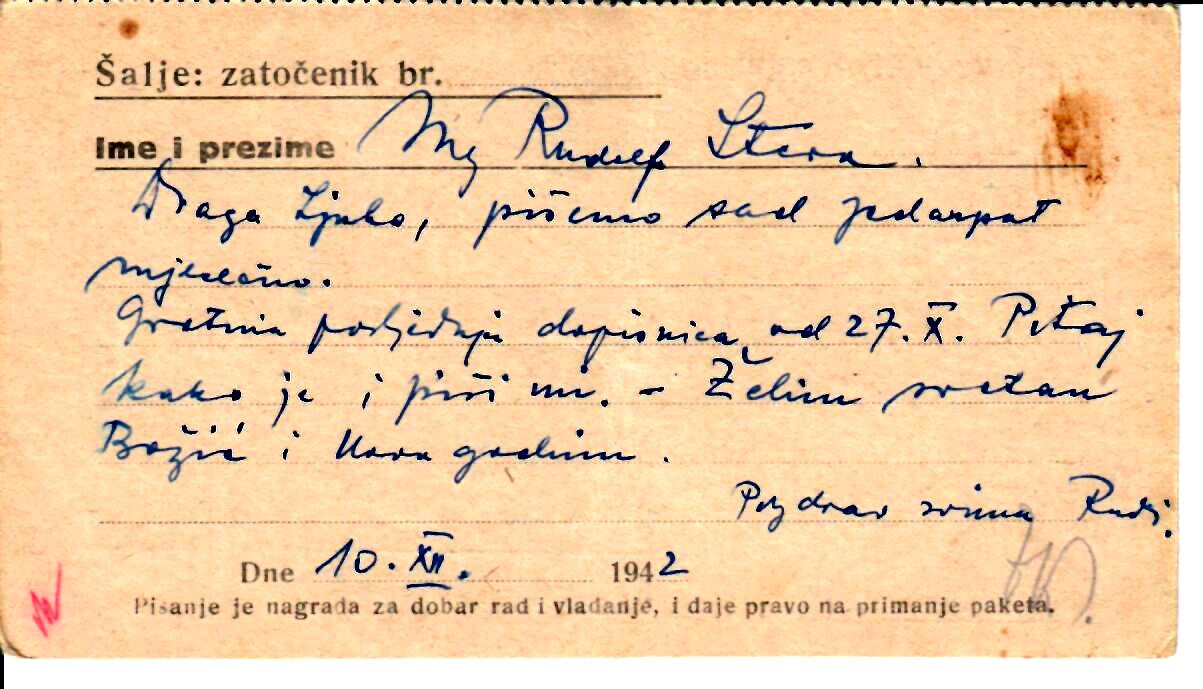 Šalje: zatočenik br.
Ime i prezime Rudolf Stern.
Draga Ljubo, pišemo sad jedanput
mjesečno.
Gretina posljednja dopisnica od 27. X. Pitaj
kako je i piši mi. – Želim sretan
Božić i Novu godinu.
Pozdrav svima Rudi.
Dne 10. XII. 1942
Pisanje je nagrada za dobar rad i vladanje, i daje pravo na primanje paketa.